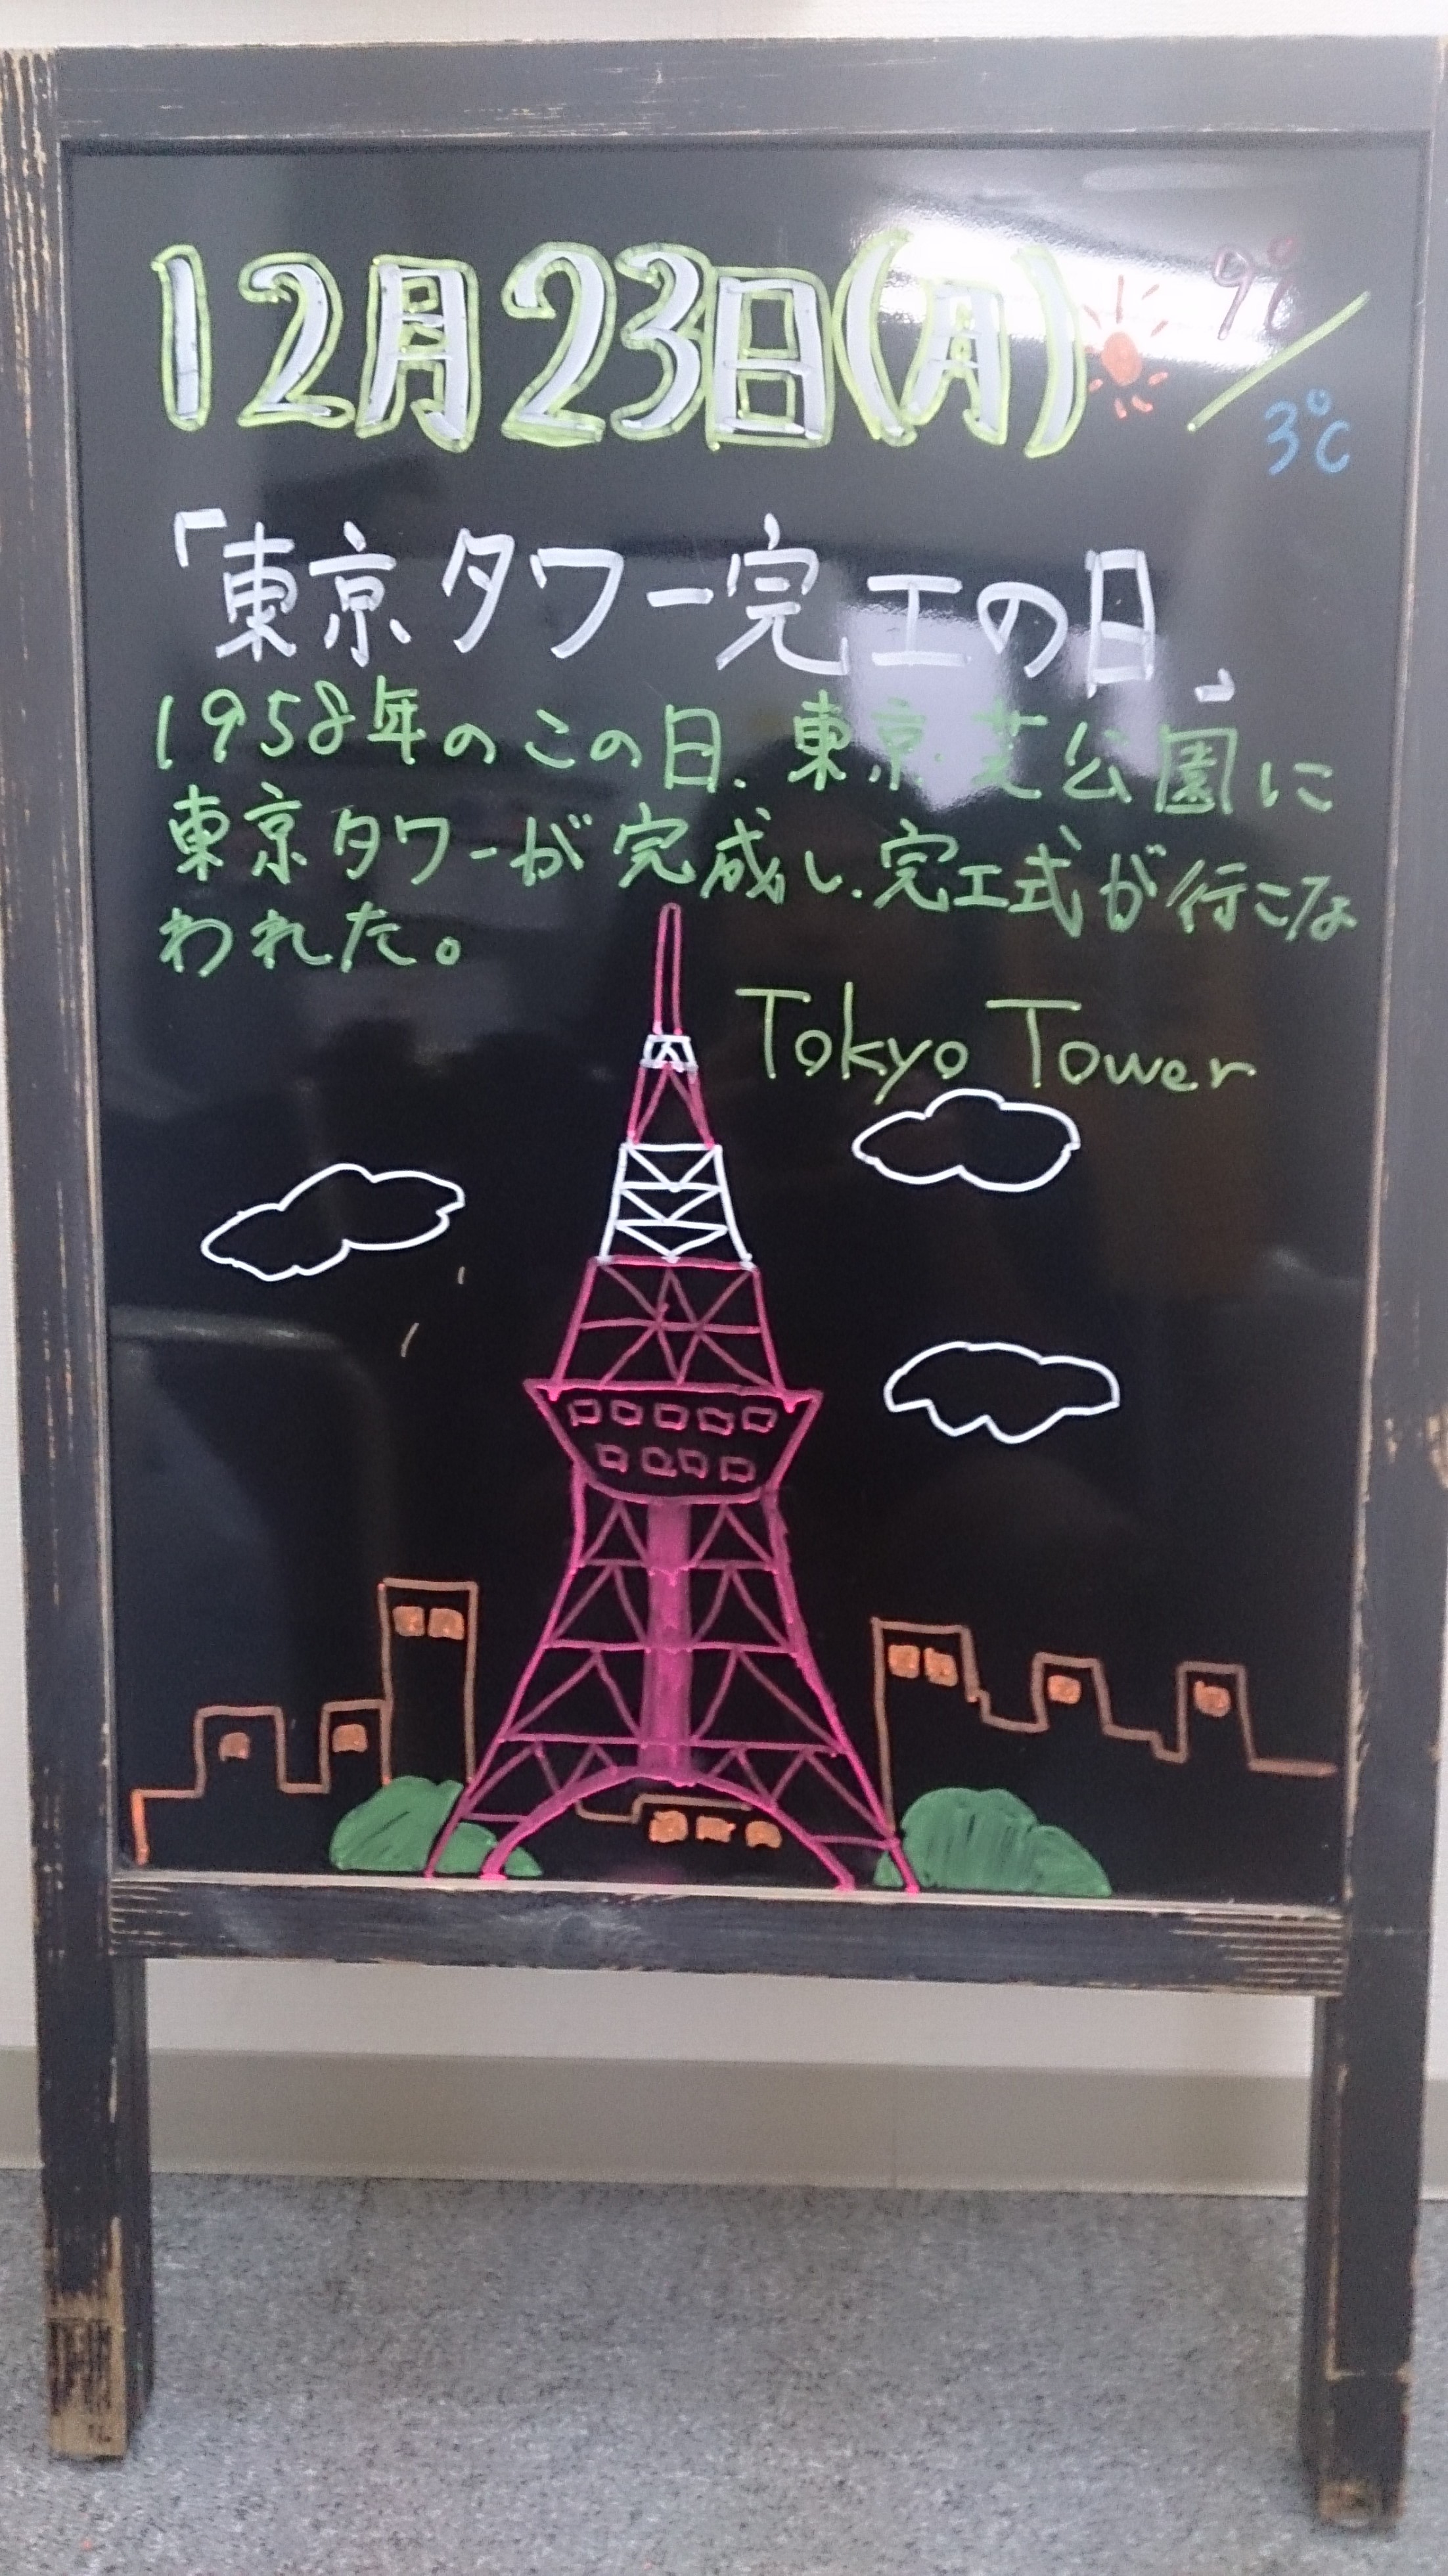 12月23日(月) 9℃/3℃
「東京タワー完工の日」
1958年のこの日、東京・芝公園に
東京タワーが完成し、完工式が行こな
われた。
Tokyo Tower